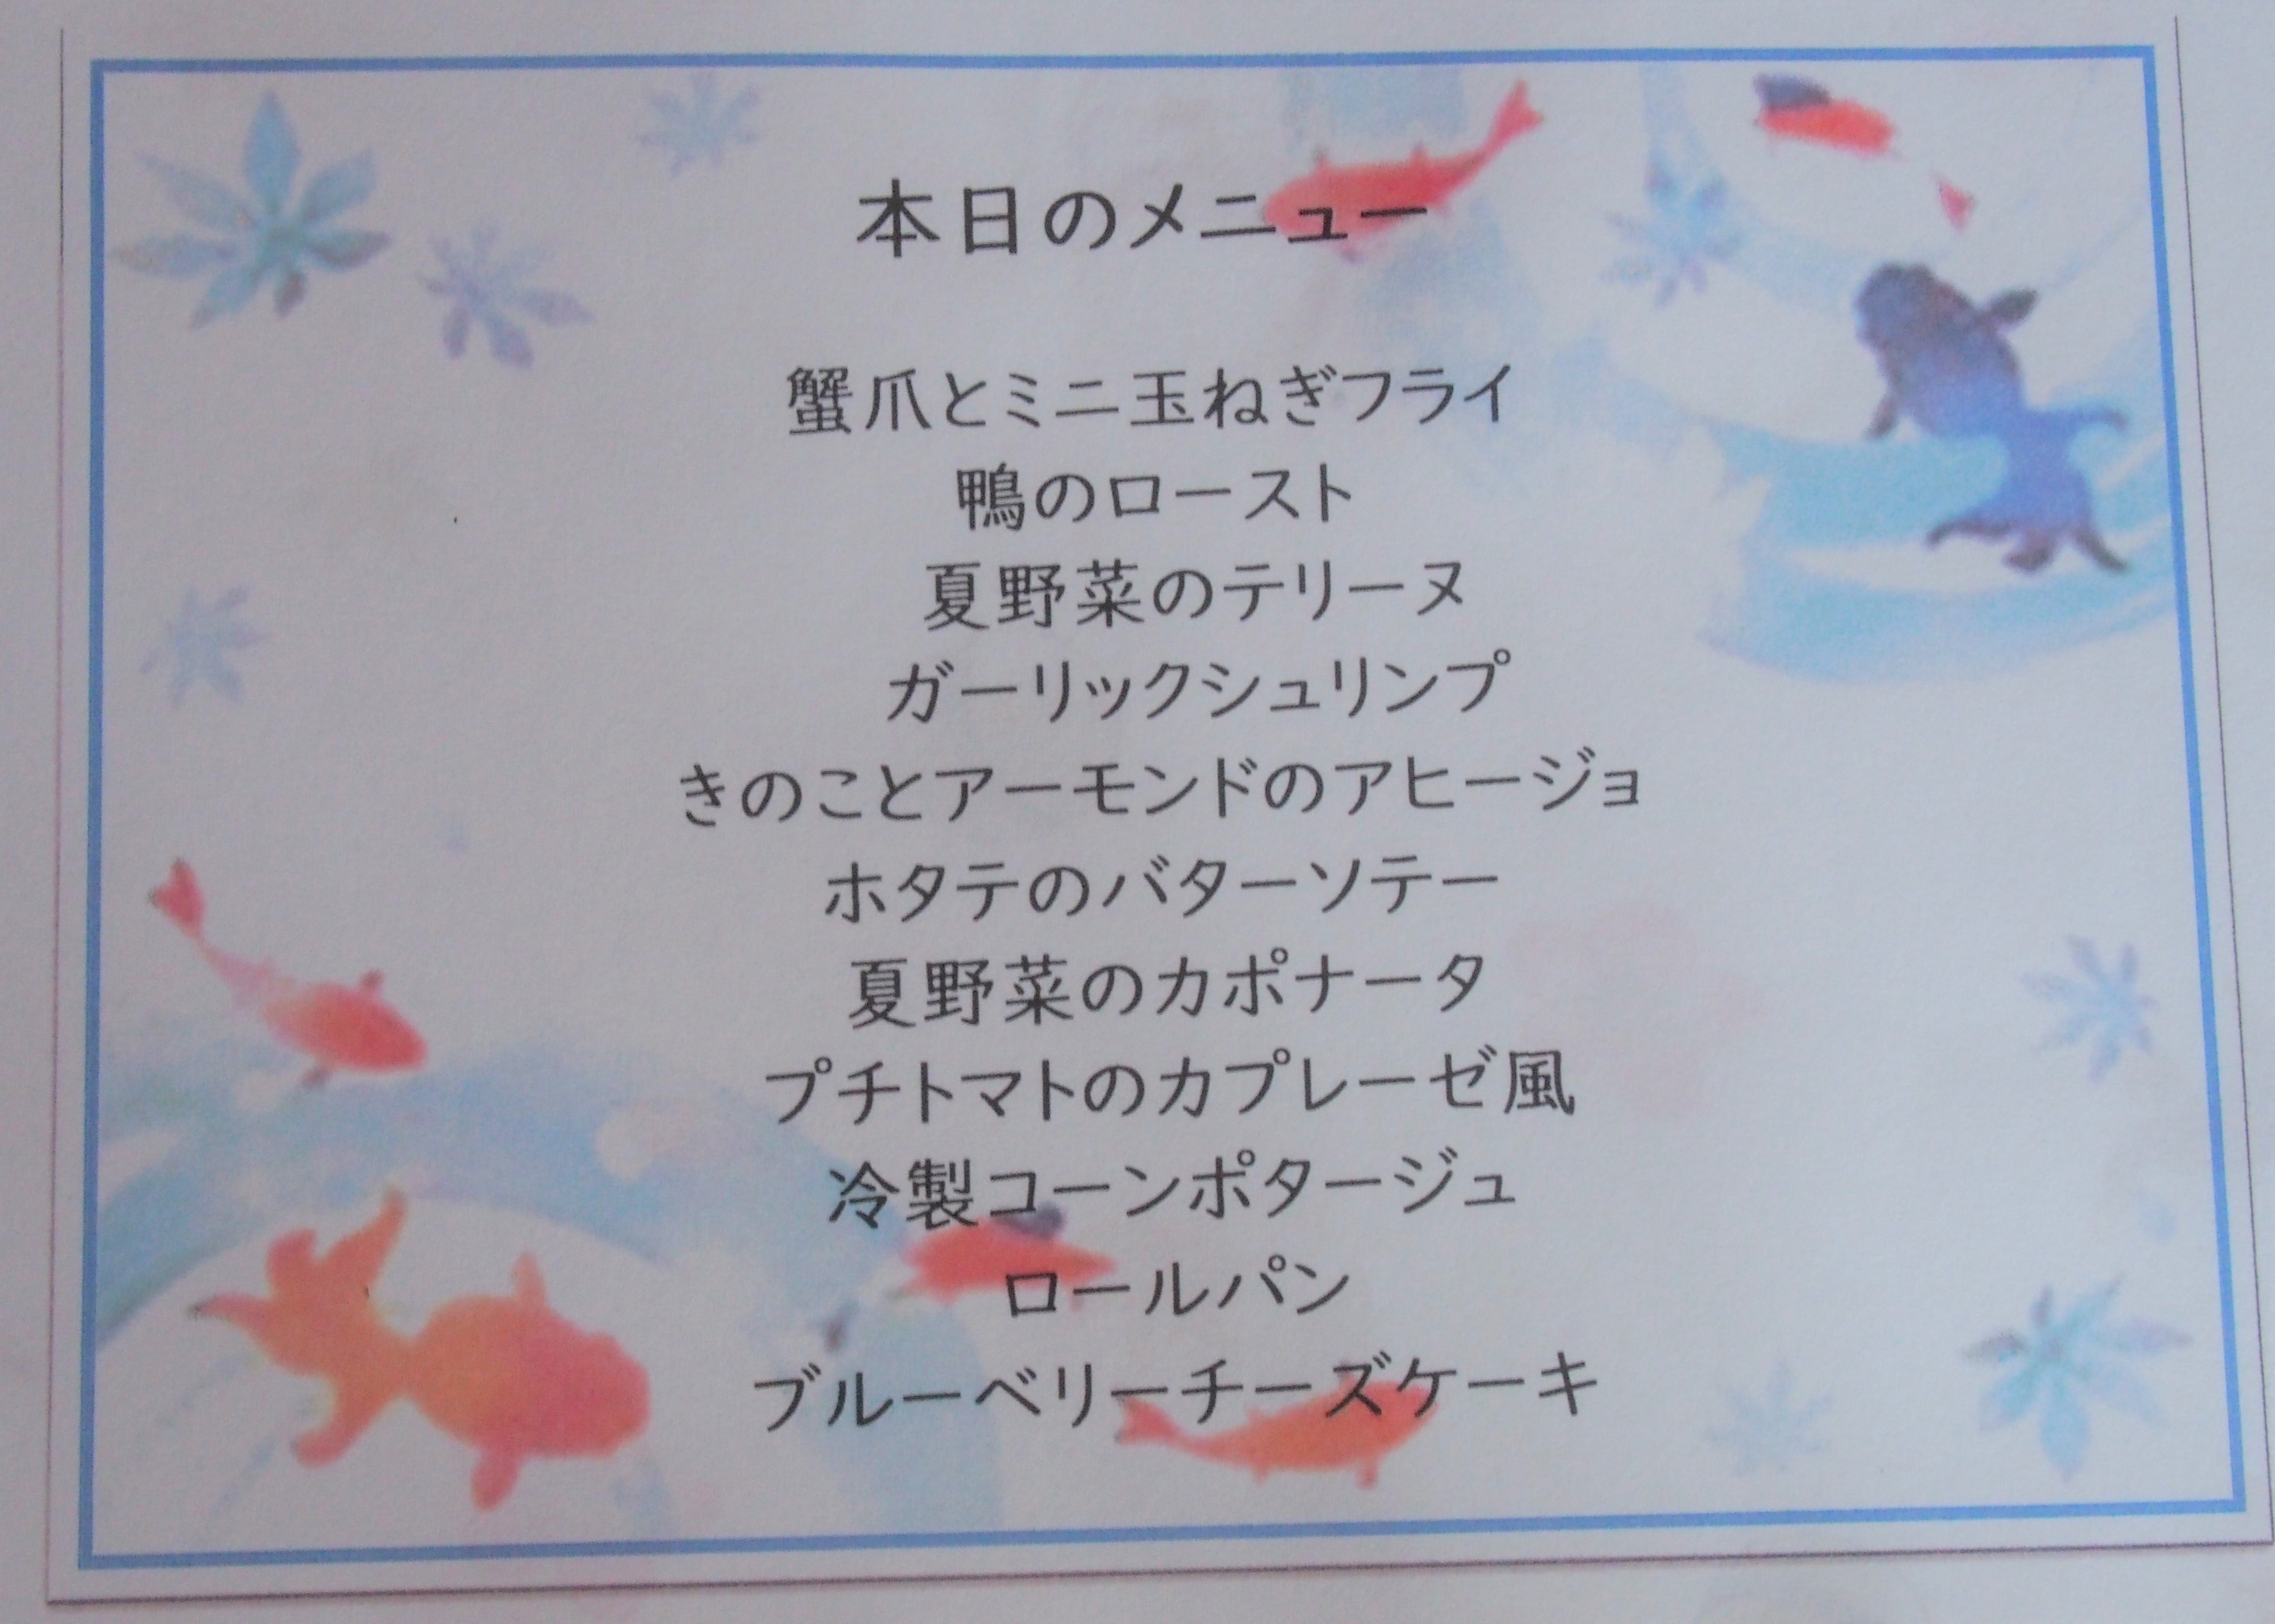 本日のメニュー
蟹爪とミニ玉ねぎフライ
鴨のロースト
夏野菜のテリーヌ
ガーリックシュリンプ
きのことアーモンドのアヒージョ
ホタテのバターソテー
夏野菜のカポナータ
プチトマトのカプレーゼ風
冷製コーンポタージュ
ロールパン
ブルーベリーチーズケーキ